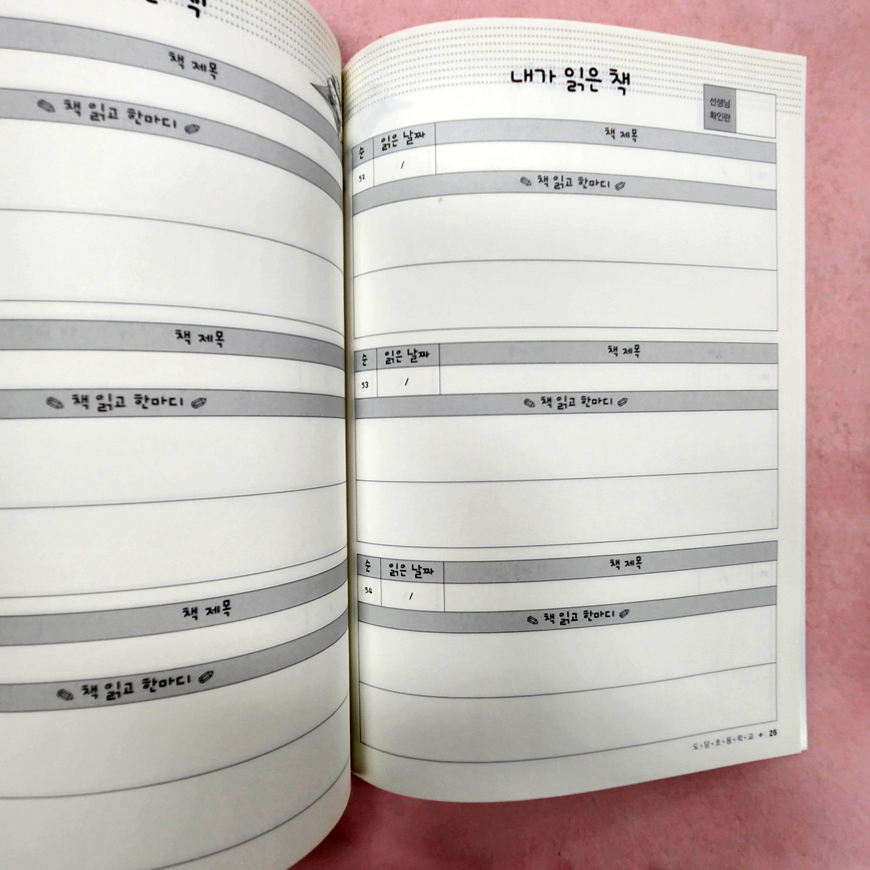 책
책 제목
책 읽고 한마디
책 제목
책 읽고 한마디
책 제목
책 읽고 한마디
내가 읽은 책
선생님
확인란
순 읽은 날짜 책 제목
52 /
책 읽고 한마디
순 읽은 날짜 책 제목
53 /
책 읽고 한마디
순 읽은 날짜 책 제목
54 /
책 읽고 한마디
도•담•초•등•학•교 • 25